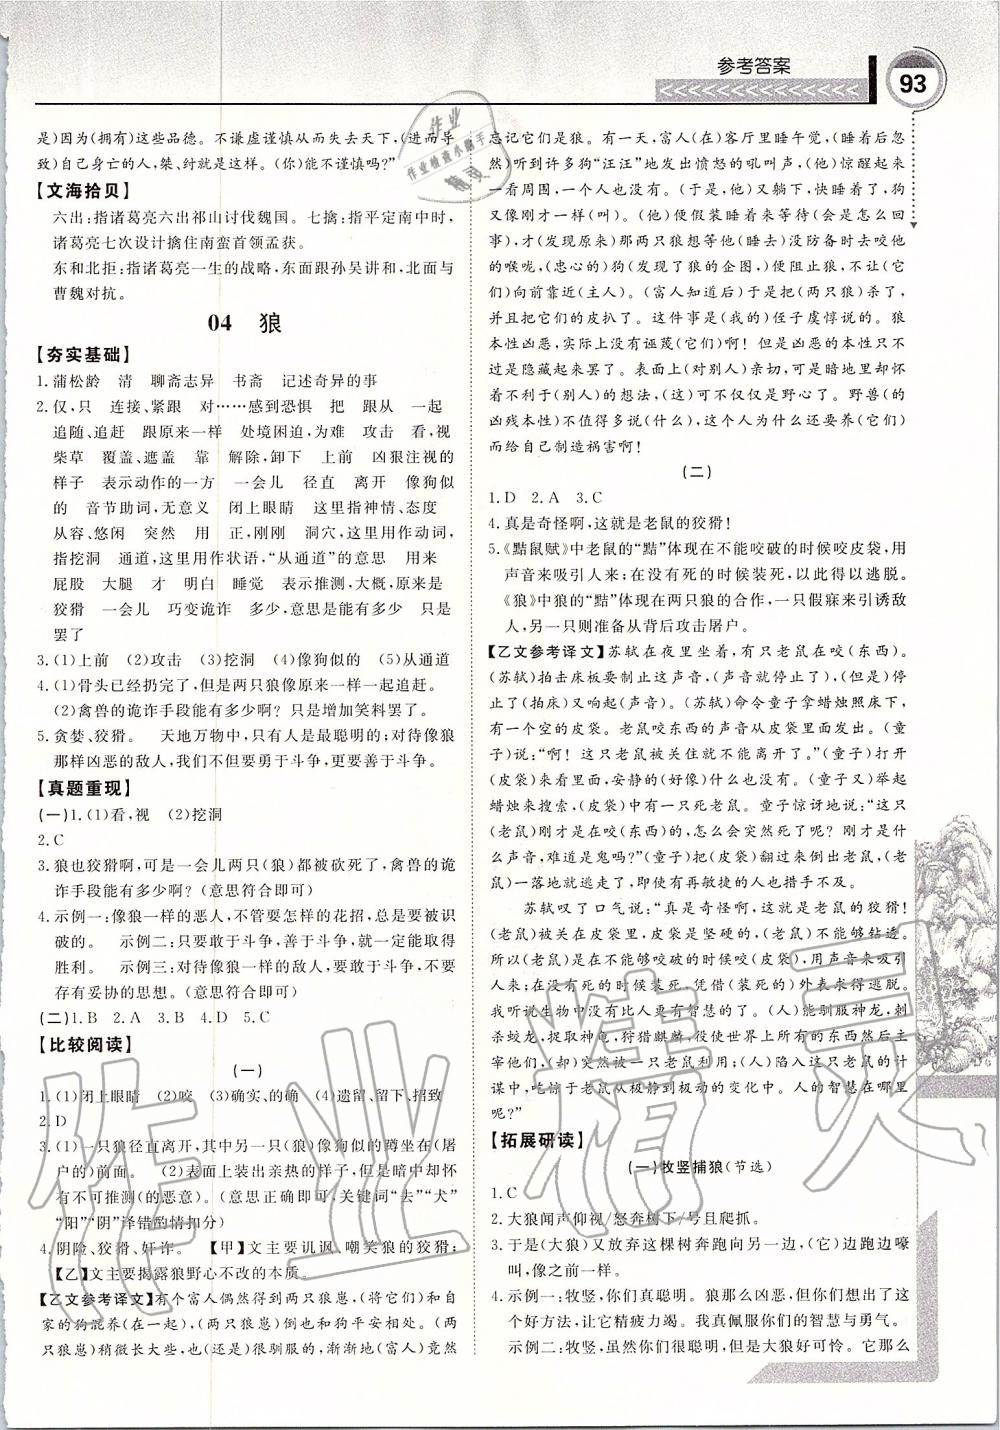 参考答案
93
是)因为(拥有)这些品德。不谦虚谨慎从而失去天下,(进而导
致)自己身亡的人,桀、纣就是这样。(你)能不谨慎吗?”
【文海拾贝】
六出:指诸葛亮六出祁山讨伐魏国。七擒:指平定南中时,
诸葛亮七次设计擒住南蛮首领孟获。
东和北拒:指诸葛亮一生的战略,东面跟孙吴讲和,北面与
曹魏对抗。
04 狼
【夯实基础】
1.蒲松龄 清 聊斋志异 书斋 记述奇异的事
2.仅,只 连接、紧跟 对……感到恐惧 把 跟从 一起
追随、追赶 跟原来一样 处境困迫,为难 攻击 看,视
柴草 覆盖、遮盖 靠 解除,卸下 上前 凶狠注视的
样子 表示动作的一方 一会儿 径直 离开 像狗似
的 音节助词,无意义 闭上眼睛 这里指神情、态度
从容、悠闲 突然 用 正,刚刚 洞穴,这里用作动词,
指挖洞 通道,这里用作状语,“从通道”的意思 用来
屁股 大腿 才 明白 睡觉 表示推测,大概,原来是
狡猾 一会儿 巧变诡诈 多少,意思是能有多少 只是
罢了
3.(1)上前 (2)攻击 (3)挖洞 (4)像狗似的 (5)从通道
4.(1)骨头已经扔完了,但是两只狼像原来一样一起追赶。
(2)禽兽的诡诈手段能有多少啊? 只是增加笑料罢了。
5.贪婪、狡猾。 天地万物中,只有人是最聪明的;对待像狼
那样凶恶的敌人,我们不但要勇于斗争,更要善于斗争。
【真题重现】
(一)1.(1)看,视 (2)挖洞
2.C
3.狼也狡猾啊,可是一会儿两只(狼)都被砍死了,禽兽的诡
诈手段能有多少啊? (意思符合即可)
4.示例一:像狼一样的恶人,不管耍怎样的花招,总是要被识
破的。 示例二:只要敢于斗争,善于斗争,就一定能取得
胜利。 示例三:对待像狼一样的敌人,要敢于斗争,不要
存有妥协的思想。(意思符合即可)
(二)1.B 2.A 3.B 4.D 5.C
【比较阅读】
(一)
1.(1)闭上眼睛 (2)咬 (3)确实、的确 (4)遗留、留下、招致
2.D
3.(1)一只狼径直离开,其中另一只(狼)像狗似的蹲坐在(屠
户的)前面。 (2)表面上装出亲热的样子,但是暗中却怀
有不可推测的(恶意)。(意思正确即可,关键词“去”“犬”
“阳”“阴”译错酌情扣分)
4.阴险、狡猾、奸诈。 【甲】文主要讥讽、嘲笑狼的狡猾;
【乙】文主要揭露狼野心不改的本质。
【乙文参考译文】有个富人偶然得到两只狼崽,(将它们)和自
家的狗混养(在一起),(两只狼崽)倒也和狗平安相处。(这
两只狼崽)稍微长大些,也(还是)很驯服的,渐渐地(富人)竟然
忘记它们是狼。有一天,富人(在)客厅里睡午觉,(睡着后忽
然)听到许多狗“汪汪”地发出愤怒的吼叫声,(他)惊醒起来
一看周围,一个人也没有。(他)又躺下,快睡着了,狗
又像刚才一样(叫)。(他)便假装睡着来等待(会是怎么一回
事),才(发现原来)那两只狼想等他(睡去)没防备时去咬他
的喉咙,(忠心的)狗(发现了狼的企图,)便阻止狼,不让(它
们)向前靠近(主人)。(富人知道后)于是把(两只狼)杀了,
并且把它们的皮扒了。这件事是(我的)侄子虞惇说的。狼
本性凶恶,实际上没有诬蔑(它们)啊! 但是,凶恶的本性只不
过是隐藏起来罢了。表面上(对别人)亲切,可是暗地里却怀
着不利于(别人)的想法,(这)可不仅仅是野心了。野兽(的
凶残本性)不值得多说(什么),这个人为什么还要养(它们)
而给自己制造祸害啊!
(二)
1.D 2.A 3.C
4.真是奇怪啊,这就是老鼠的狡猾!
5.《黠鼠赋》中老鼠的“黠”体现在不能咬破的时候咬皮袋,用
声音来吸引人来;在没有死的时候装死,以此得以逃脱。
《狼》中狼的“黠”体现在两只狼的合作,一只假寐来引诱敌
人,另一只则准备从背后攻击屠户。
【乙文参考译文】苏轼在夜里坐着,有只老鼠在咬(东西)。
(苏轼)拍击床板要制止这声音,(声音就停了)停止了,(但是
停止后)又响起(一次声音)。(苏轼)命令童子拿蜡烛照床下,
有一个空的皮袋。老鼠咬东西的声音从皮袋里面发出。(童
子)说:“啊! 这只老鼠被关住就不能离开了。”(童子)打开
(皮袋)来看里面,安静的(好像)什么也没有。(童子又)举起
蜡烛来搜索,(皮袋)中有一只死老鼠。童子惊讶地说:“这只
(老鼠)刚才是在咬(东西)的,怎么会突然死了呢? 刚才是什
么声音,难道是鬼吗?”(童子)把(皮袋)翻过来倒出老鼠,(老
鼠)一落地就逃走了。就是再敏捷的人也措手不及。
苏轼叹了口气说:“真是奇怪啊,这是老鼠的狡猾!
(老鼠)被关在皮袋里,皮袋是坚硬的,(老鼠)不能够钻透。
(所以老鼠)在不能够咬破的时候咬(皮袋),用声音来吸引
人来;在没死的时候装死,凭借(装死的)外表求得逃脱。
我听说生物中没有比人更有智慧的了。(人)能驯服神龙,刺
杀蛟龙,捉取神龟,狩猎麒麟,役使世界上所有的东西然后主
宰他们,(却)突然被一只老鼠利用;(人)陷入这只老鼠的计
谋中,吃惊于老鼠从极静到极动的变化中。人的智慧在哪里
呢?”
【拓展研读】
(一)牧竖捕狼(节选)
1.C
2.大狼闻声仰视/怒奔树下/号且爬抓。
3.于是(大狼)又放弃这棵树奔跑向另一边,(它)边跑边嚎
叫,像之前一样。
4.示例一:牧竖,你们真聪明。狼那么凶恶,但你们想出了这
个好方法,让它精疲力竭。我真佩服你们的智慧与勇气。
示例二:牧竖,虽然你们很聪明,但大狼好可怜。它那么
作业
作业检查小助手
精灵
作业精灵